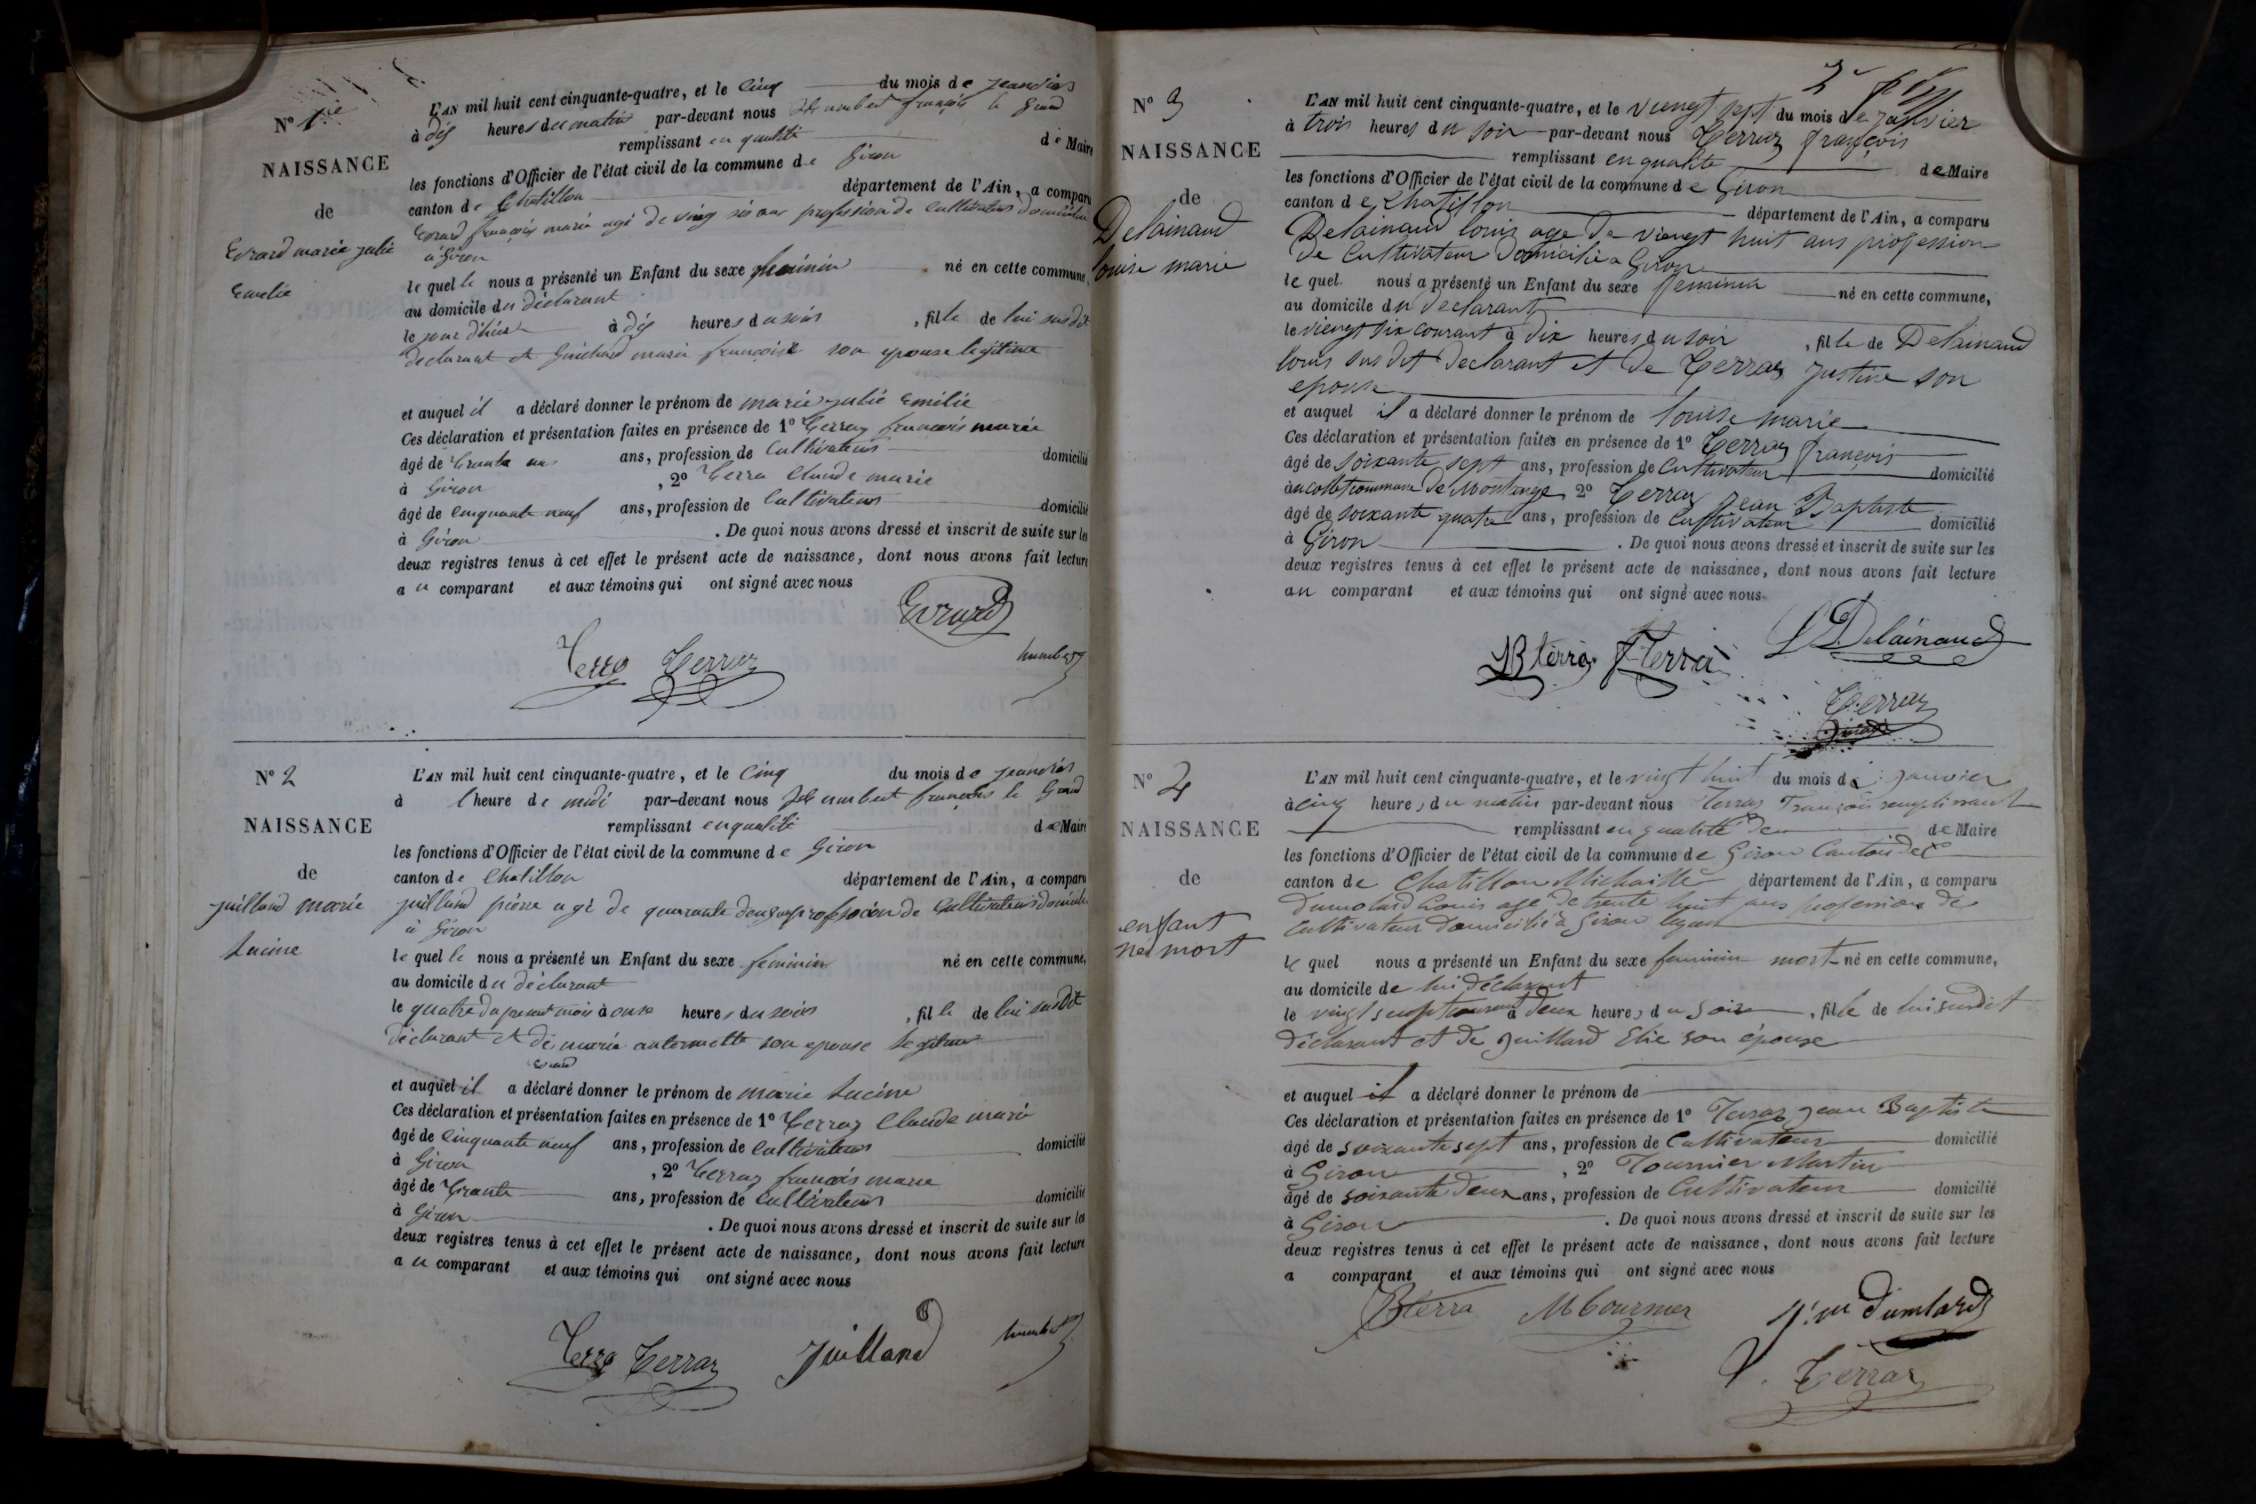 N° 1re
NAISSANCE
de
Evrard marie julie
Emelie
L'AN mil huit cent cinquante-quatre, et le cinq du mois de jeanvier
à dis heures du matin par-devant nous humbert françois le Grand
remplissant en qualité de Maire
les fonctions d'Officier de l'état civil de la commune de Giron
canton de Chatillon département de l'Ain, a comparu
Evrard françois marie agé de ving six ans profession de Cultivateur domicilié
à Giron
le quel le nous a présenté un Enfant du sexe feminin né en cette commune,
au domicile du déclarant
le jour d'hier à dis heures du soir, fille de lui sus dit
declarant et Guichard marie françoise son epouse legitime
et auquel il a déclaré donner le prénom de marie julie Emilie
Ces déclaration et présentation faites en présence de 1° Terraz francois marie
âgé de trente ans ans, profession de Cultivateur domicilié
à Giron, 2° Terra Claude marie
âgé de cinquante neuf ans, profession de Cultivateur domicilié
à Giron. De quoi nous avons dressé et inscrit de suite sur les
deux registres tenus à cet effet le présent acte de naissance, dont nous avons fait lecture
au comparant et aux témoins qui ont signé avec nous
Evrard
Terra Terraz humbert
N° 2
NAISSANCE
de
juilland marie
Lucine
L'AN mil huit cent cinquante-quatre, et le cinq du mois de jeanvier
à l'heure de midi par-devant nous humbert françois le Grand
remplissant en qualité de Maire
les fonctions d'Officier de l'état civil de la commune de Giron
canton de Chatillon département de l'Ain, a comparu
juilland pierre agé de quarante deux ans profession de Cultivateur domicilié
à Giron
le quel le nous a présenté un Enfant du sexe feminin né en cette commune,
au domicile du déclarant
le quatre du present mois à onze heures du soir, fille de lui sus dit
déclarant et de marie antoinette son epouse legitime
Evrard
et auquel il a déclaré donner le prénom de marie Lucine
Ces déclaration et présentation faites en présence de 1° Terraz Claude marie
âgé de cinquante neuf ans, profession de Cultivateur domicilié
à Giron, 2° Terraz francois marie
âgé de trante ans, profession de Cultivateur domicilié
à Giron. De quoi nous avons dressé et inscrit de suite sur les
deux registres tenus à cet effet le présent acte de naissance, dont nous avons fait lecture
au comparant et aux témoins qui ont signé avec nous
Terra Terraz Juilland humbert
N° 3
NAISSANCE
de
Delainaud
louise marie
L'AN mil huit cent cinquante-quatre, et le viengt sept du mois de janvier
à trois heures du soir par-devant nous Terraz françois
remplissant en qualité de Maire
les fonctions d'Officier de l'état civil de la commune de Giron
canton de Chatillon département de l'Ain, a comparu
Delainaud louis age de viengt huit ans profession
de Cultivateur domicilié a Giron
le quel nous a présenté un Enfant du sexe feminin né en cette commune,
au domicile du declarant
le viengt six courant à dix heures du soir, fille de Delainaud
louis sus dit declarant et de Terraz justine son
epouse
et auquel il a déclaré donner le prénom de louise marie
Ces déclaration et présentation faites en présence de 1° Terraz françois
âgé de soixante sept ans, profession de Cultivateur domicilié
à commune de Montange 2° Terraz Jean Baptiste
âgé de soixante quatre ans, profession de Cultivateur domicilié
à Giron. De quoi nous avons dressé et inscrit de suite sur les
deux registres tenus à cet effet le présent acte de naissance, dont nous avons fait lecture
au comparant et aux témoins qui ont signé avec nous
JB terra F terra L Delainaud
Terraz
N° 4
NAISSANCE
de
enfant
né mort
L'AN mil huit cent cinquante-quatre, et le vingt huit du mois de janvier
à cinq heures du matin par-devant nous Terraz François remplissant
remplissant en qualité de de Maire
les fonctions d'Officier de l'état civil de la commune de Giron Canton de
canton de Chatillon Michaille département de l'Ain, a comparu
Dumolard Louis agé de trente huit ans profession de
Cultivateur domicilié à Giron
le quel nous a présenté un Enfant du sexe feminin mort né en cette commune,
au domicile de lui déclarant
le vingt sept courant à deux heures du soir, fille de lui susdit
déclarant et de Juillard Elie son épouse
et auquel il a déclaré donner le prénom de
Ces déclaration et présentation faites en présence de 1° Terraz Jean Baptiste
âgé de soixante sept ans, profession de Cultivateur domicilié
à Giron, 2° Tournier Martin
âgé de soixante deux ans, profession de Cultivateur domicilié
à Giron. De quoi nous avons dressé et inscrit de suite sur les
deux registres tenus à cet effet le présent acte de naissance, dont nous avons fait lecture
a comparant et aux témoins qui ont signé avec nous
JB terra M tournier dumlard
Terraz